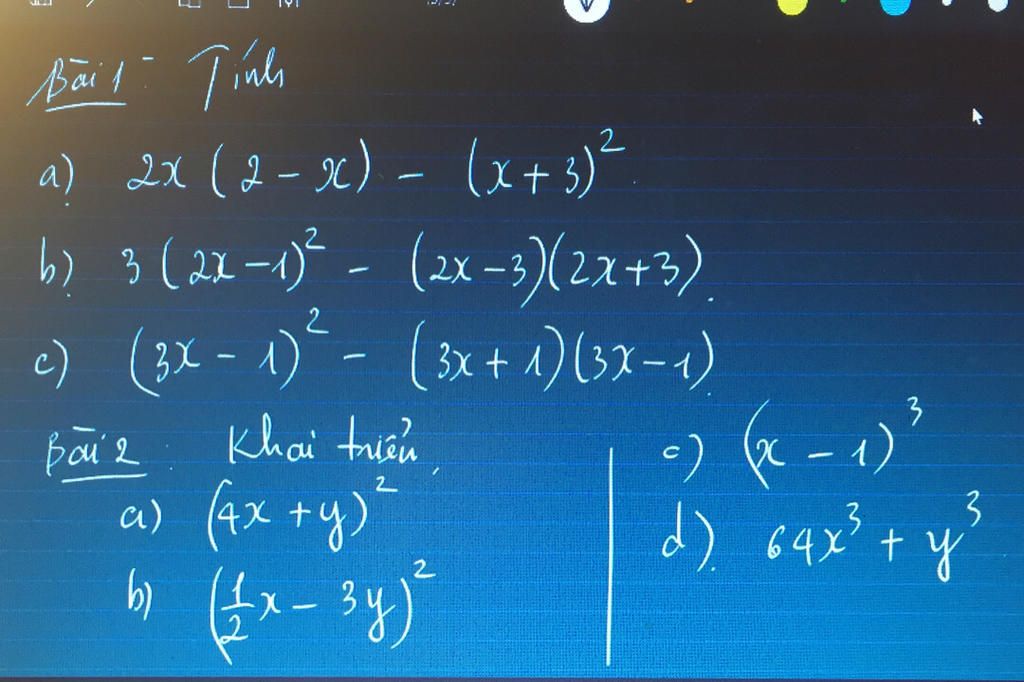 Bài 1: Tính
a) 2x (2 - x) - (x + 3)²
b) 3 (2x - 1)² - (2x - 3)(2x + 3).
c) (3x - 1)² - (3x + 1)(3x - 1)
Bài 2: Khai triển
a) (4x + y)²
b) (1/2 x - 3y)²
c) (x - 1)³
d) 64x³ + y³